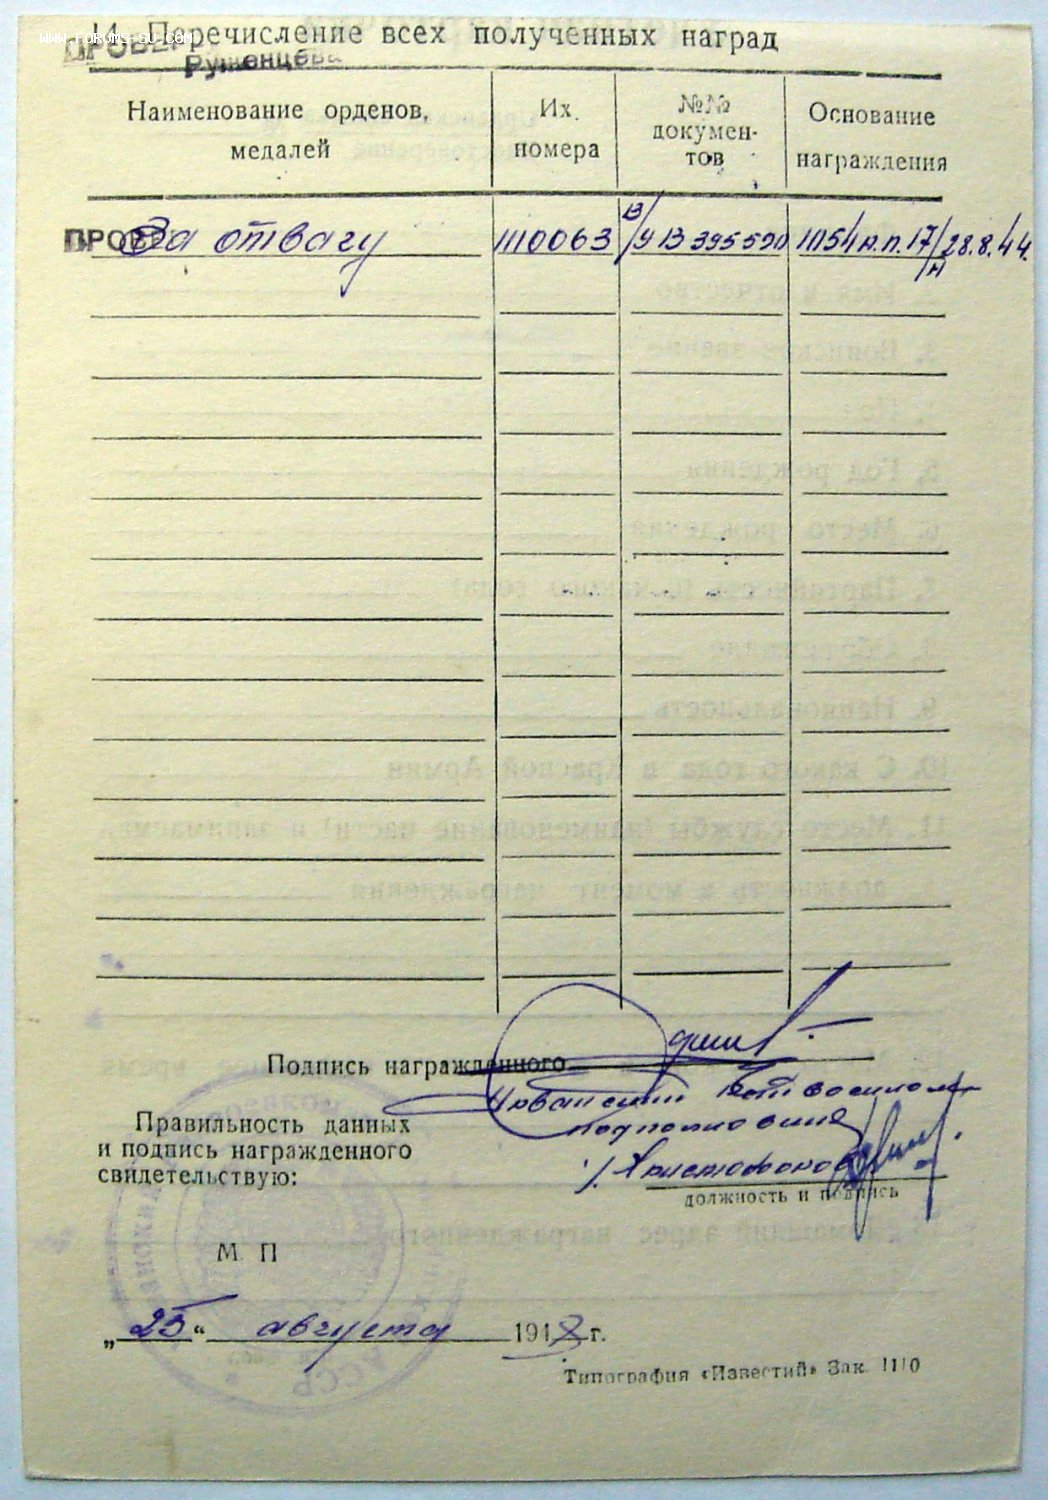 WWW.FORUMS-SU.COM
14. Перечисление всех полученных наград
Руженцева
Наименование орденов, медалей
Их номера
№№ документов
Основание награждения
ПРОВЕ
За отвагу
1110063
В/У В 395590
1154 а.п. 17/н 28.8.44.
Подпись награжденного
Правильность данных
и подпись награжденного
свидетельствую:
подполковник
/Христофоров
должность и подпись
М П
„25“ августа 1948 г.
Типография «Известий» Зак. 1110